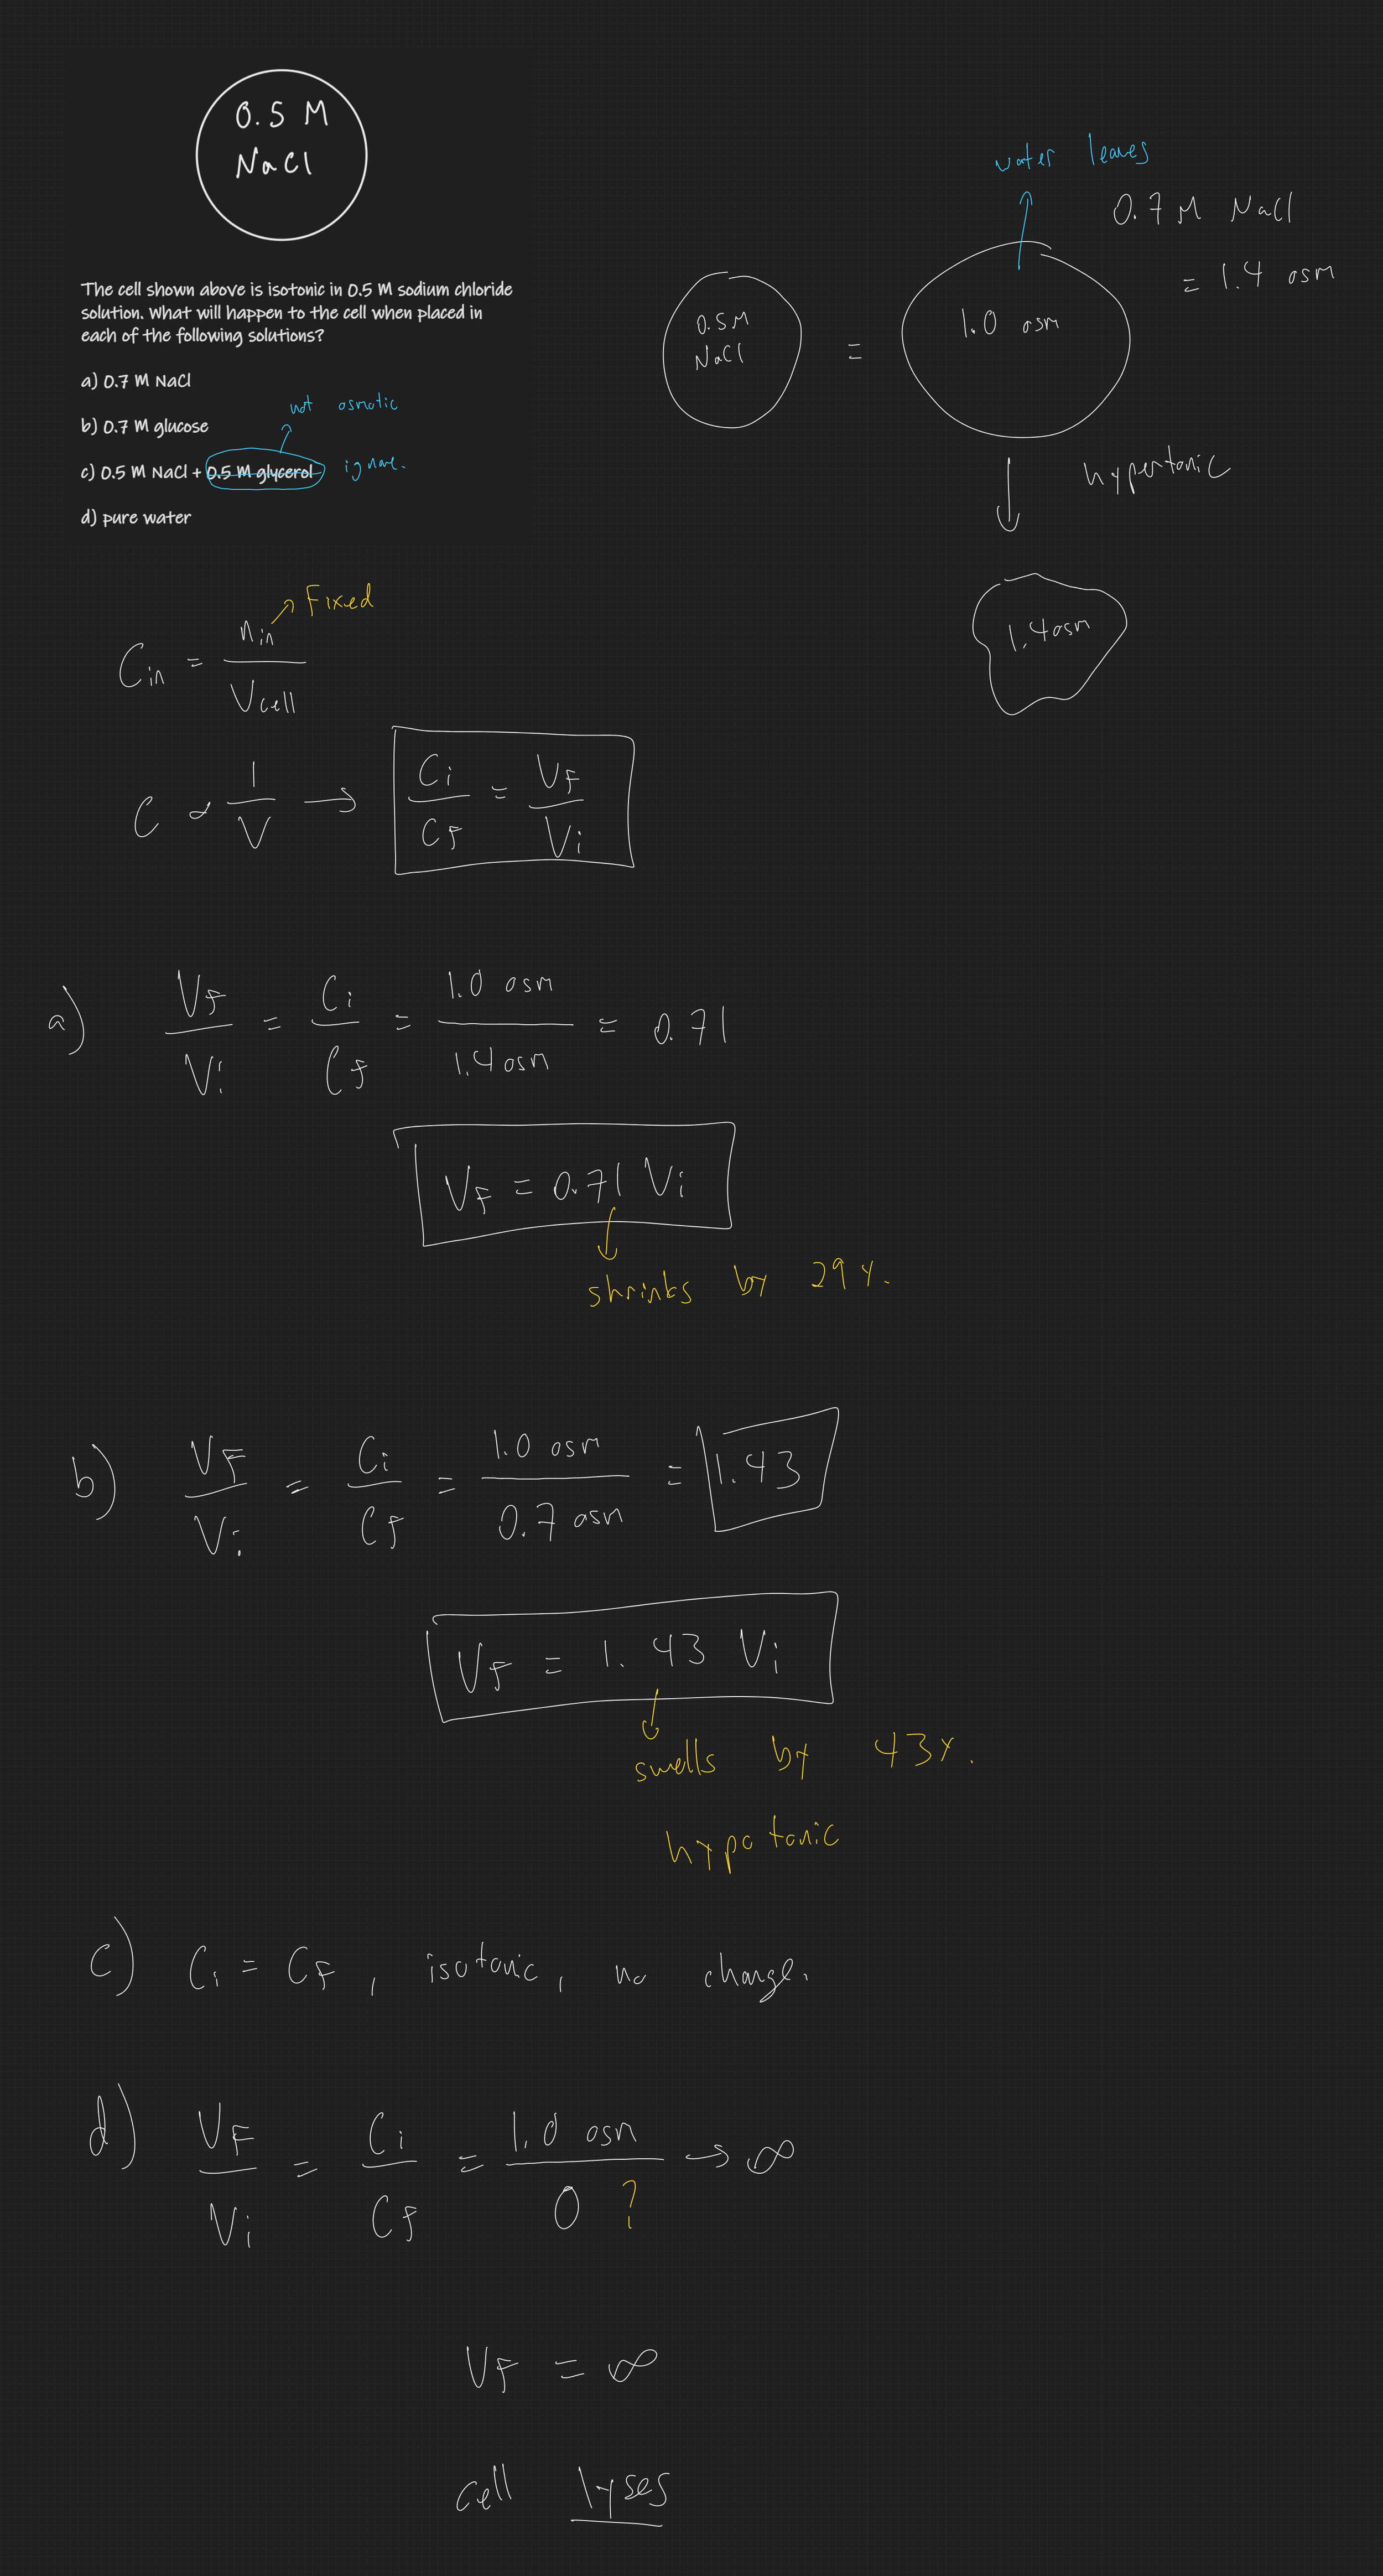 0.5 M
NaCl
The cell shown above is isotonic in 0.5 M sodium chloride
solution. What will happen to the cell when placed in
each of the following solutions?
a) 0.7 M NaCl
not osmotic
b) 0.7 M glucose
c) 0.5 M NaCl + 0.5 M glycerol ignore.
d) pure water
water leaves
0.7 M NaCl
= 1.4 osm
0.5M
NaCl
=
1.0 osm
hypertonic
1.4 osm
Fixed
C_in = n_in / V_cell
C ∝ 1/V → C_i / C_F = V_F / V_i
a) V_F / V_i = C_i / C_F = 1.0 osm / 1.4 osm = 0.71
V_F = 0.71 V_i
shrinks by 29%.
b) V_F / V_i = C_i / C_F = 1.0 osm / 0.7 osm = 1.43
V_F = 1.43 V_i
swells by 43%.
hypotonic
c) C_i = C_F, isotonic, no change.
d) V_F / V_i = C_i / C_F = 1.0 osm / 0 ? → ∞
V_F = ∞
cell lyses